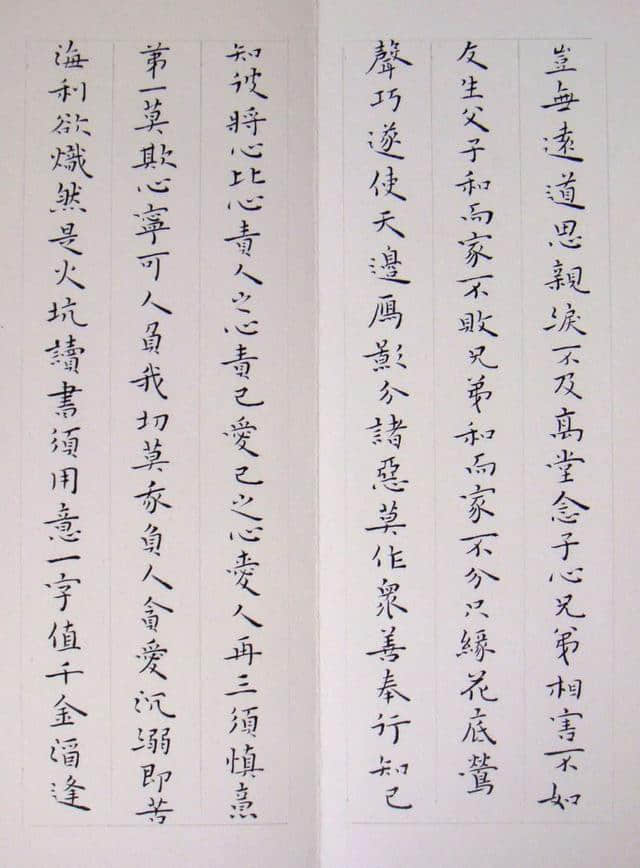 豈無遠道思親淚不及高堂念子心兄弟相害不如
友生父子和而家不敗兄弟和而家不分只緣花底鶯
聲巧遂使天邊鴈影分諸惡莫作衆善奉行知己
知彼將心比心責人之心責己愛己之心愛人再三須慎意
第一莫欺心寧可人負我切莫我負人貪愛沉溺即苦
海利欲熾然是火坑讀書須用意一字值千金酒逢